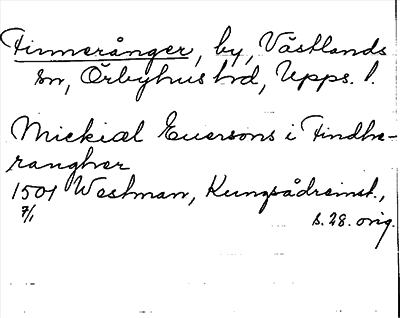 Finnerånger, by, Västlands
sn, Örbyhus hd, Upps. l.
Mickiæl Euersons i Findhe-
rangher
1501 Westman, Kungsådreinst.,
7/1 s. 28. orig.